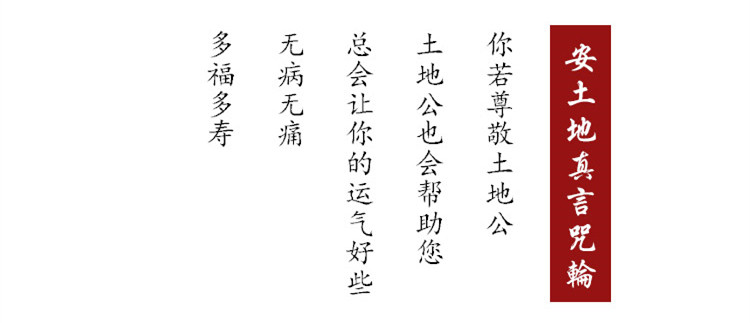 安土地真言咒輪
你若尊敬土地公
土地公也会帮助您
总会让你的运气好些
无病无痛
多福多寿